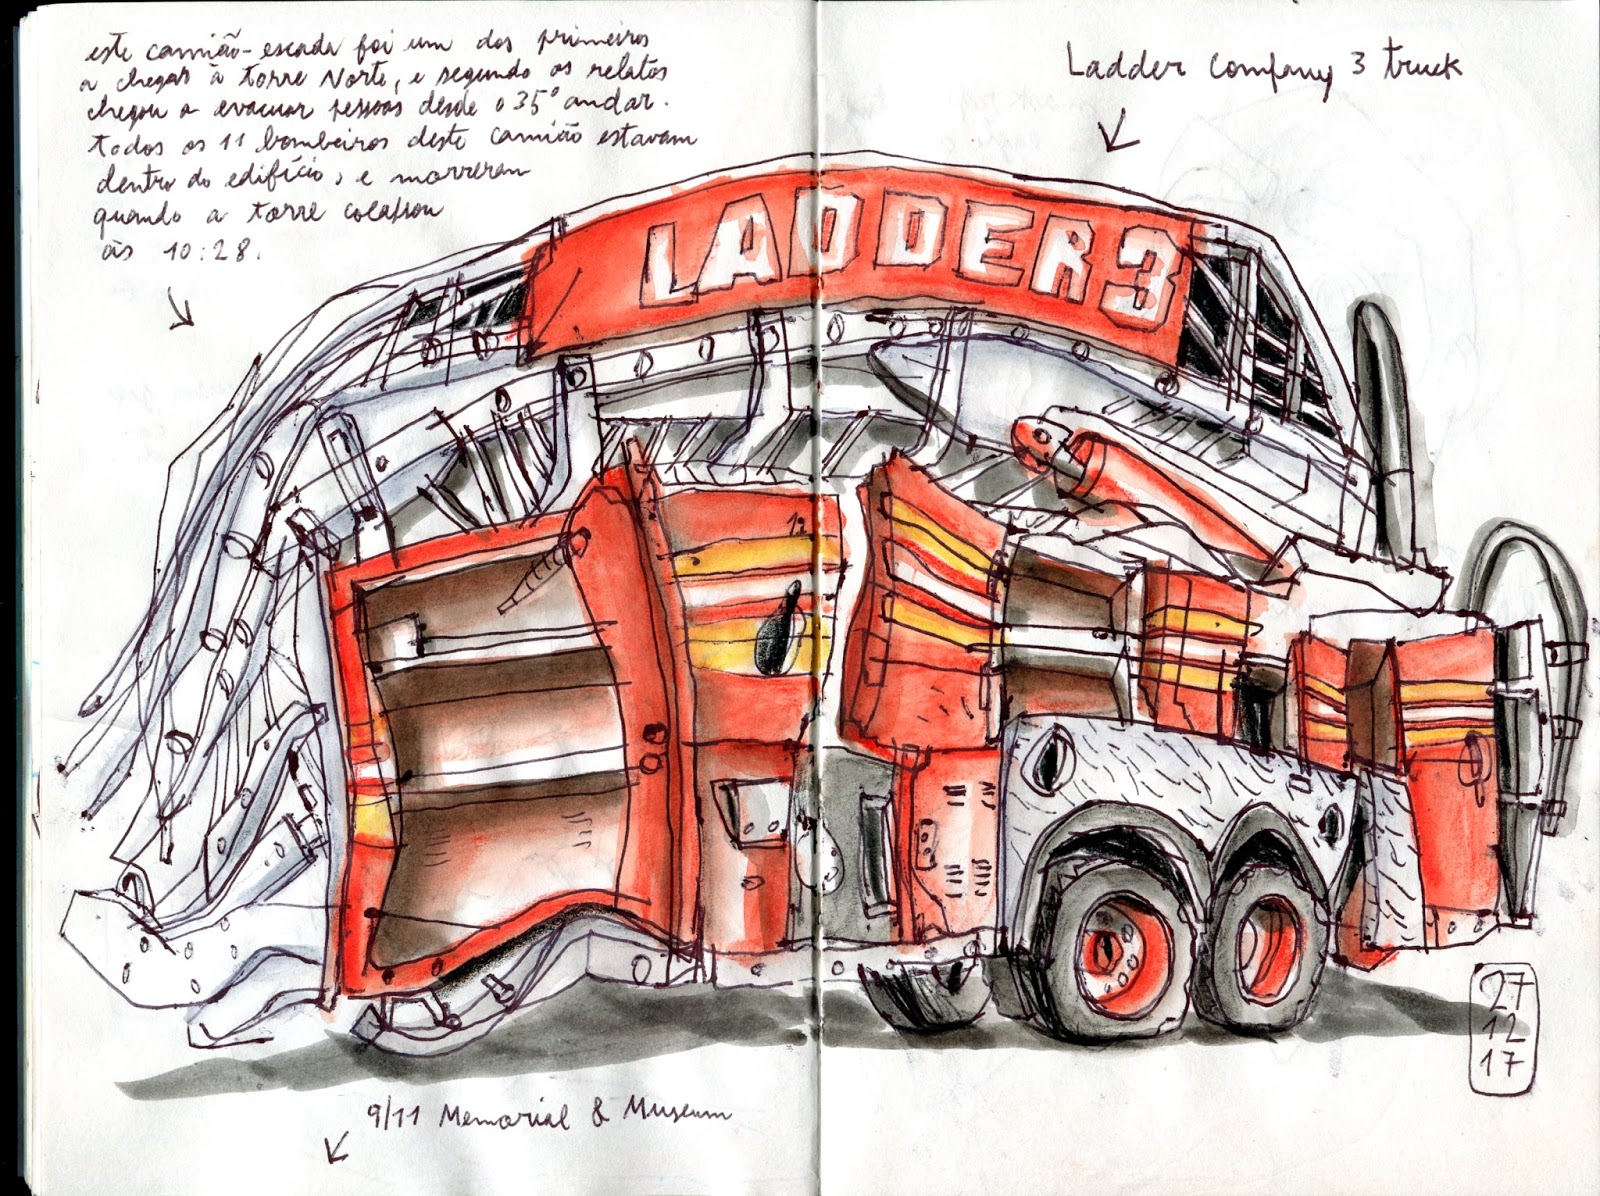 este camião-escada foi um dos primeiros
a chegar à torre Norte, e segundo os relatos
chegou a evacuar pessoas desde o 35º andar.
todos os 11 bombeiros deste camião estavam
dentro do edifício, e morreram
quando a torre colapsou
às 10:28.
Ladder Company 3 truck
LADDER 3
12
9/11 Memorial & Museum
27
12
17